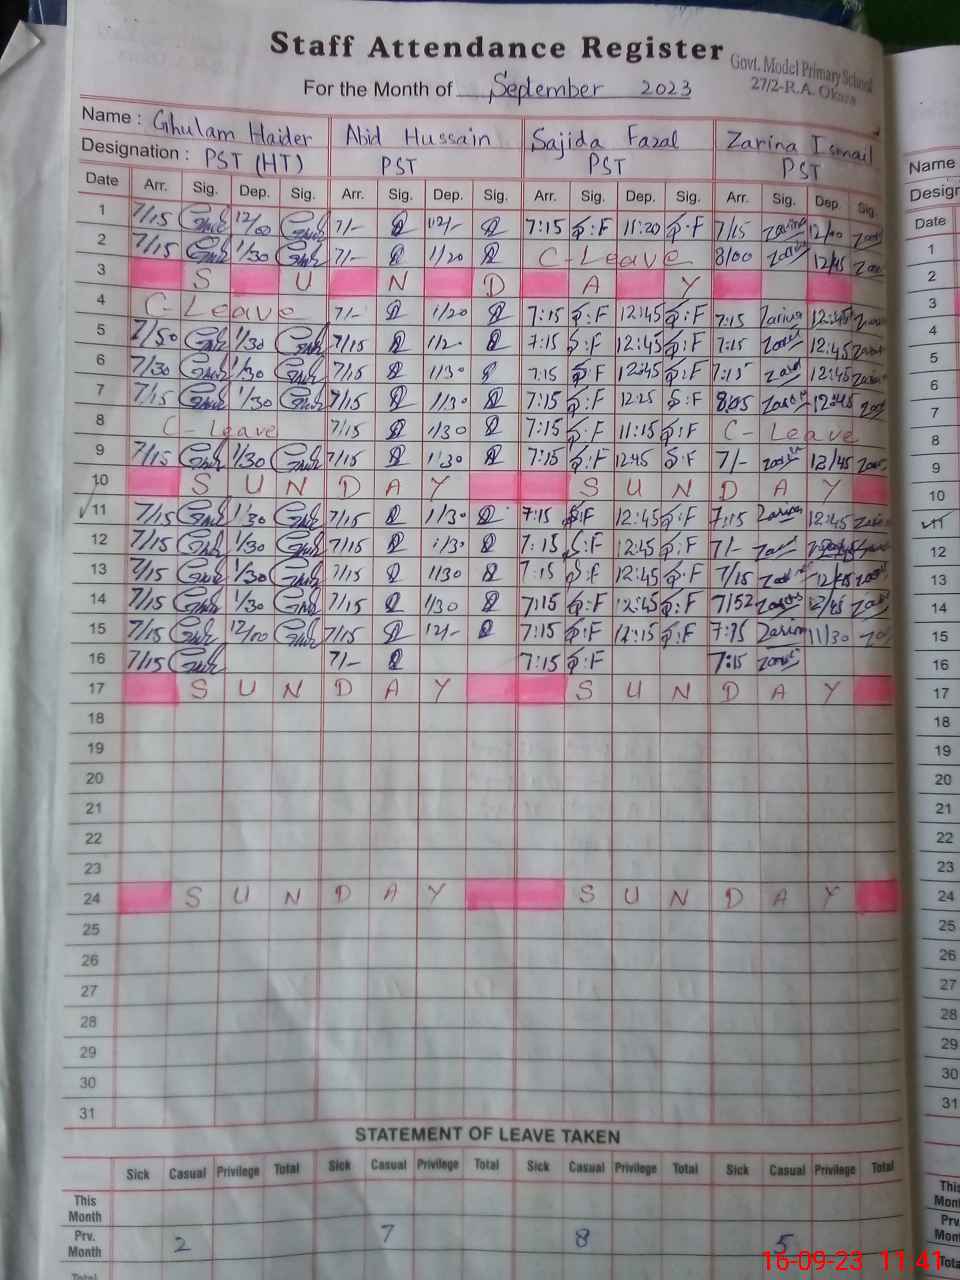 Staff Attendance Register
Govt. Model Primary School
27/2-R.A. Okara
For the Month of September 2023
Name : Ghulam Haider Abid Hussain Sajida Fazal Zarina Ismail
Designation : PST (HT) PST PST PST
Date Arr. Sig. Dep. Sig. Arr. Sig. Dep. Sig. Arr. Sig. Dep. Sig. Arr. Sig. Dep. Sig.
1 7/15 12/00 7/- 12/- 7:15 S:F 11:20 S:F 7/15 12/00
2 7/15 1/30 7/- 1/20 C-Leave 8/00 12/45
3 S U N D A Y
4 C-Leave 7/- 1/20 7:15 S:F 12:45 S:F 7:15 Zarina 12:45
5 7/50 1/30 7/15 7:15 S:F 12:45 S:F 7:15 12:45
6 7/30 1/30 7/15 1/30 7:15 S:F 12:45 S:F 7:15 12:45
7 7/15 1/30 7/15 1/30 7:15 S:F 12:25 S:F 12:45
8 C-Leave 7/15 1/30 7:15 S:F 11:15 S:F C-Leave
9 7/15 1/30 7/15 1/30 7:15 S:F 12:45 S:F 7/- 12/45
10 S U N D A Y S U N D A Y
11 7/15 1/30 7/15 1/30 7:15 S:F 12:45 S:F 7:15 Zarina 12:45
12 7/15 1/30 7/15 1/30 7:15 S:F 12:45 S:F 7/-
13 7/15 1/30 7/15 1/30 7:15 S:F 12:45 S:F 7/15 12/45
14 7/15 1/30 7/15 1/30 7:15 S:F 12:45 S:F
15 7/15 12/00 7/15 12/- 7:15 S:F 12:15 S:F Zarina 11/30
16 7/15 7/- 7:15 S:F 7:15
17 S U N D A Y S U N D A Y
18
19
20
21
22
23
24 S U N D A Y S U N D A Y
25
26
27
28
29
30
31
STATEMENT OF LEAVE TAKEN
Sick Casual Privilege Total Sick Casual Privilege Total Sick Casual Privilege Total Sick Casual Privilege Total
This Month
Prv. Month 2 7 8 5
Total
16-09-23 11:41
Name
Date
1
2
3
4
5
6
7
8
9
10
11
12
13
14
15
16
17
18
19
20
21
22
23
24
25
26
27
28
29
30
31